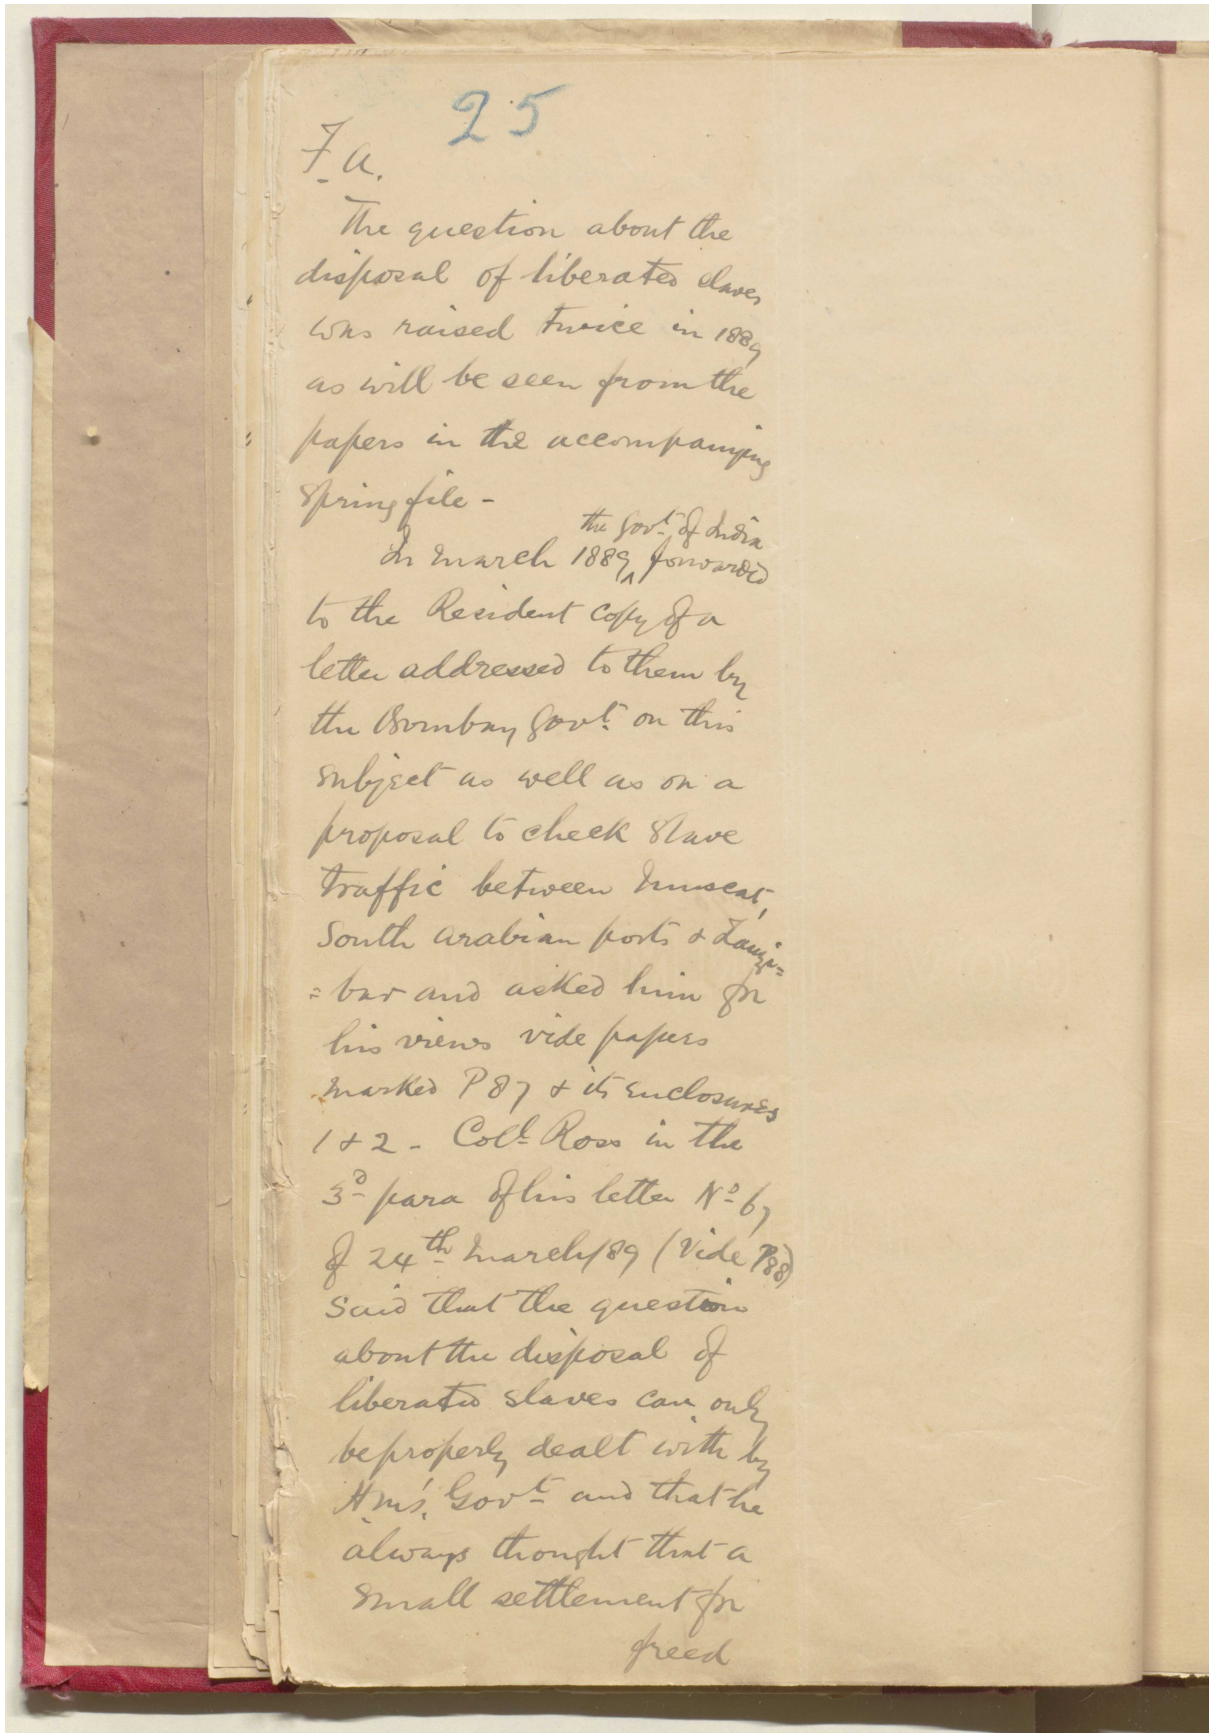 25
F. A.
The question about the
disposal of liberated slaves
was raised twice in 1889
as will be seen from the
papers in the accompanying
Spring file -
the Govt. of India
In March 1889 ^ forwarded
to the Resident copy of a
letter addressed to them by
the Bombay Govt. on this
subject as well as on a
proposal to check Slave
traffic between Muscat,
South Arabian ports & Zanzi=
=bar and asked him for
his views vide papers
marked P 87 & its enclosures
1 & 2 - Coll. Ross in the
3d para of his letter No 67
of 24th March/89 (Vide P88)
said that the question
about the disposal of
liberated slaves can only
be properly dealt with by
H.M's. Govt and that he
always thought that a
small settlement for
freed